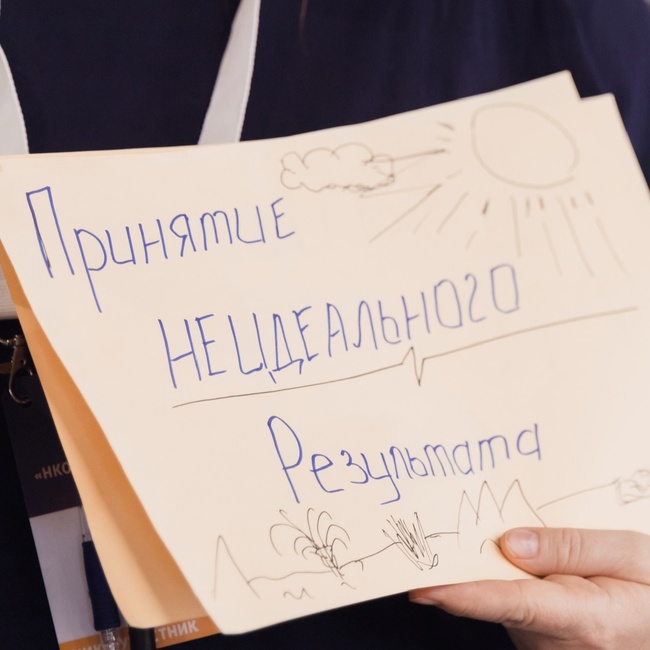 Принятие
НЕИДЕАЛЬНОГО
Результата
«НКО
СТНИК